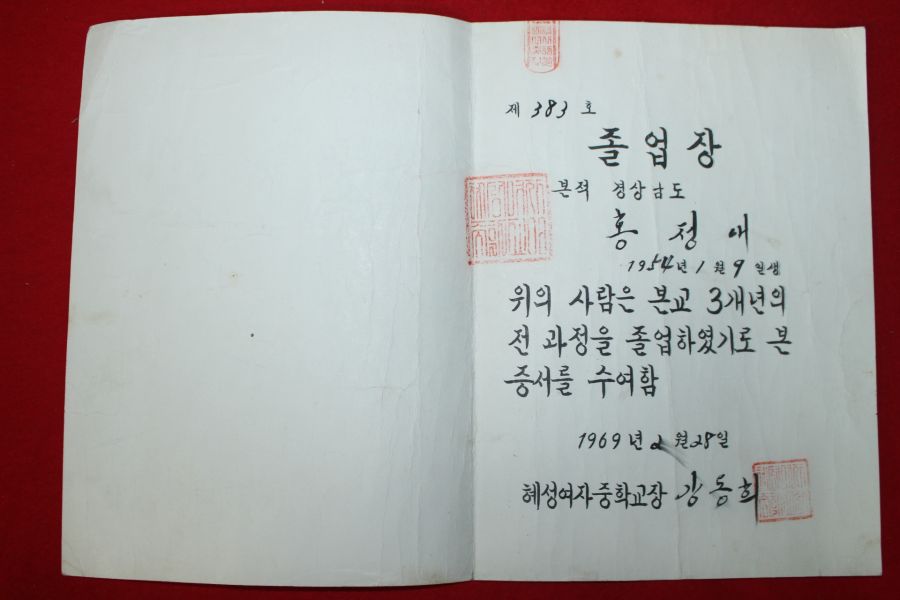 제 383 호
졸업장
본적 경상남도
홍정애
1954년 1월 9일생
위의 사람은 본교 3개년의
전 과정을 졸업하였기로 본
증서를 수여함
1969년 2월 28일
혜성여자중학교장 강동희